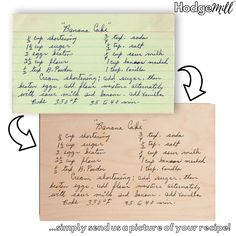 HodgeMill
"Banana Cake"
½ cup shortening ¾ tsp. soda
1½ cup sugar ½ tsp. salt
2 eggs beaten ¼ cup sour milk
2¼ cup flour 1 cup banana mashed
½ tsp. B. Powder 1 tsp. Vanilla
Cream shortening; add sugar, then
beaten eggs. Add flour mixture alternately
with sour milk and bananas. Add Vanilla
Bake 350°F 35 to 40 min.
"Banana Cake"
½ cup shortening ¾ tsp. soda
1½ cup sugar ½ tsp. salt
2 eggs beaten ¼ cup sour milk
2¼ cup flour 1 cup banana mashed
½ tsp. B. Powder 1 tsp. Vanilla
Cream shortening; add sugar, then
beaten eggs. Add flour mixture alternately
with sour milk and bananas. Add Vanilla
Bake 350°F 35 to 40 min.
...simply send us a picture of your recipe!